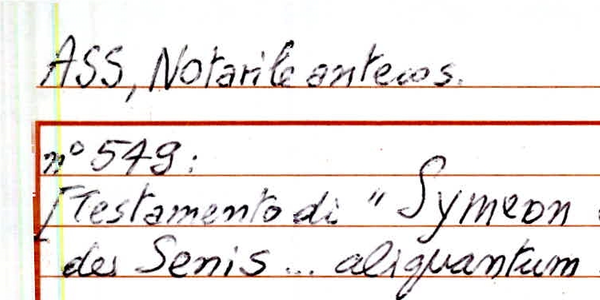 ASS, Notarile antecos.
n° 549:
[Testamento di "Symeon
des Senis ... aliquantum